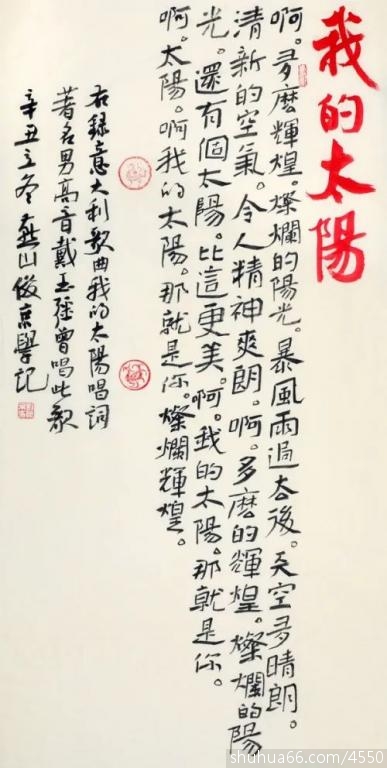 我的太陽
啊。多麽輝煌。燦爛的陽光。暴風雨過去後。天空多晴朗。
清新的空氣。令人精神爽朗。啊。多麽的輝煌。燦爛的陽
光。還有個太陽。比這更美。啊。我的太陽。那就是你。
啊。太陽。啊我的太陽。那就是你。燦爛輝煌。
右録意大利歌曲我的太陽唱詞
著名男高音戴玉强曾唱此歌
辛丑立冬燕山俊京學記
shuhua66.com/4550